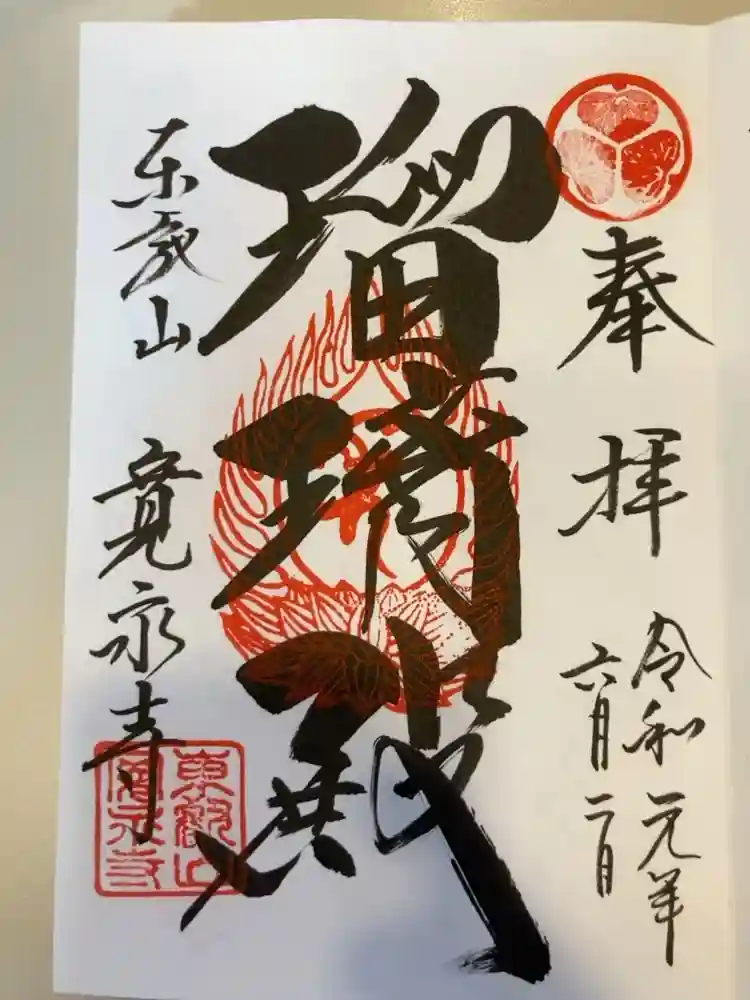 奉拝
令和元年
六月二日
瑠璃殿
東叡山
寛永寺
東叡山
寛永寺